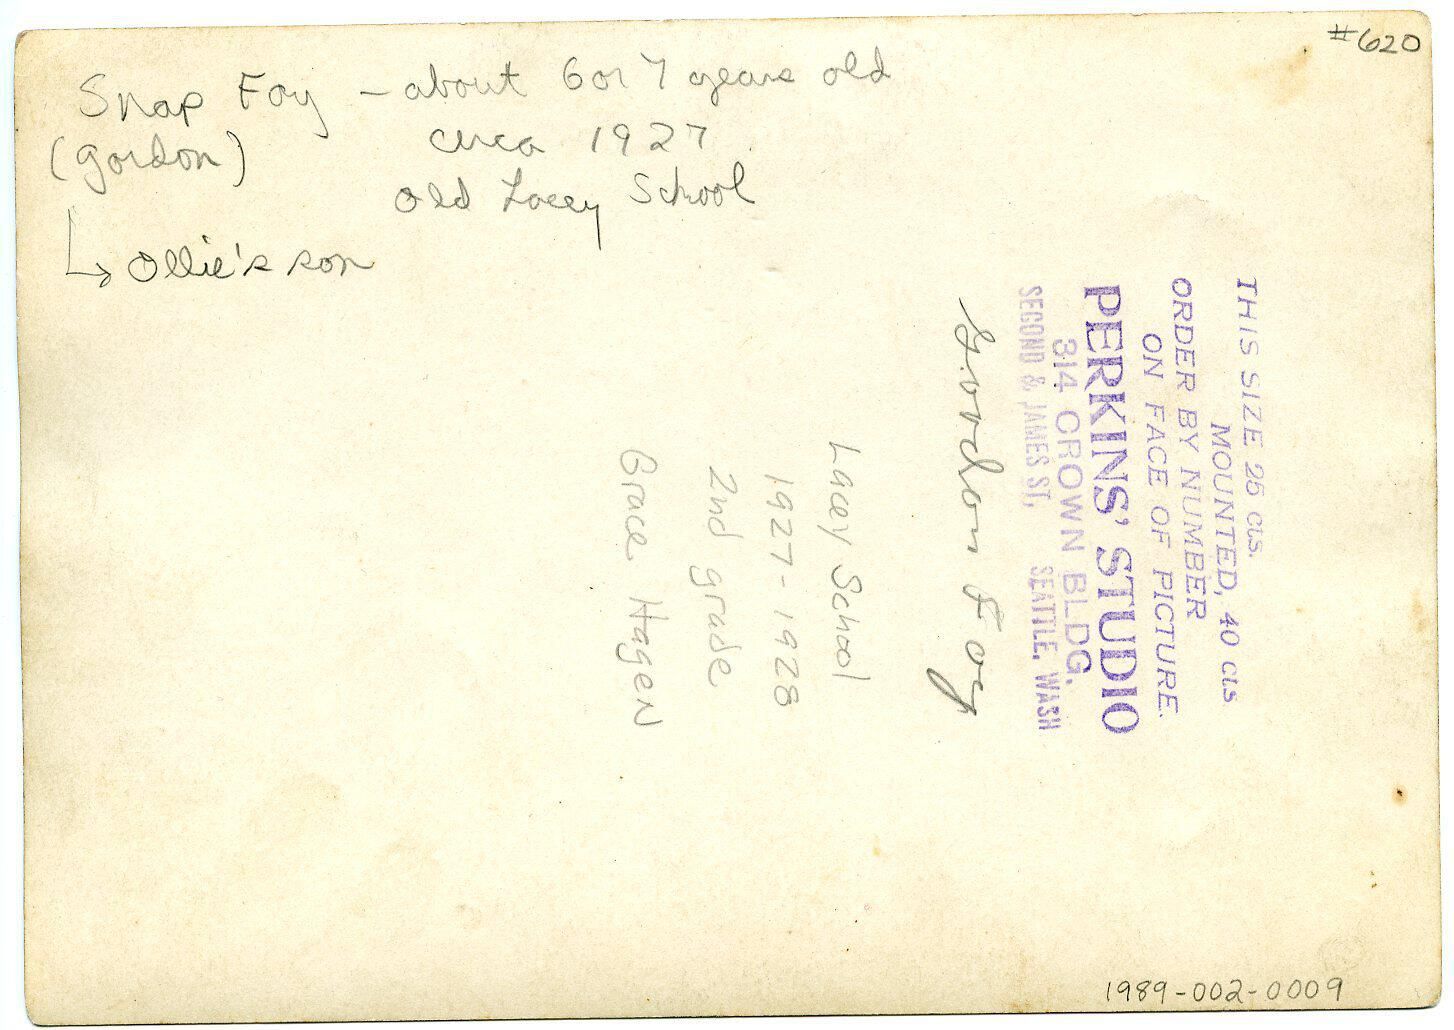 #620
Snap Foy - about 6 or 7 years old
(Gordon) circa 1927
Old Lacey School
↳ Ollie's son
THIS SIZE 25 cts.
MOUNTED, 40 cts
ORDER BY NUMBER
ON FACE OF PICTURE.
PERKINS' STUDIO
314 CROWN BLDG.
SECOND & JAMES ST, SEATTLE, WASH
Gordon Foy
Lacey School
1927-1928
2nd grade
Grace Hagen
1989-002-0009